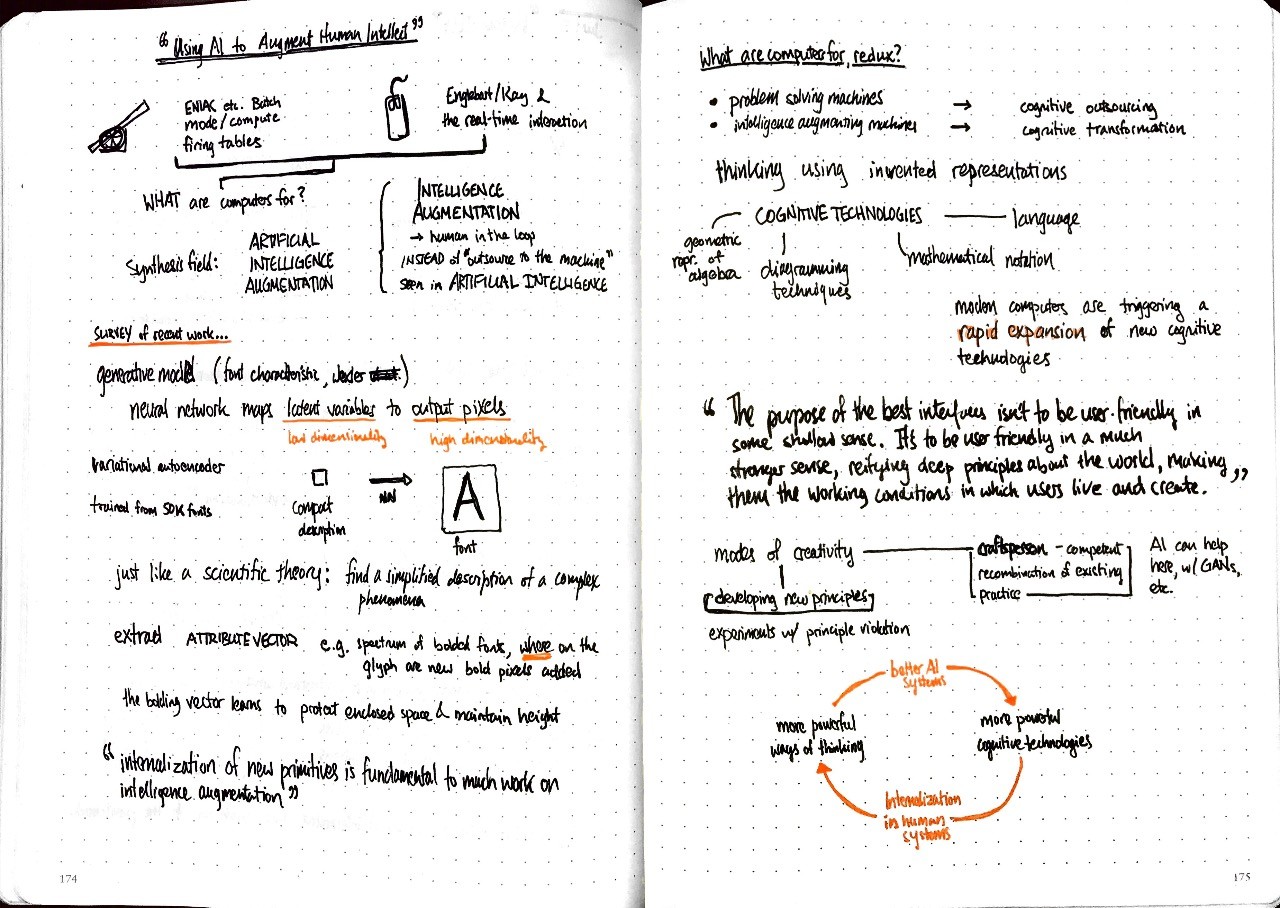 "Using AI to Augment Human Intellect"
ENIAC etc. Batch
mode/compute
firing tables
Englebart/Kay &
the real-time interaction
WHAT are computers for?
Synthesis field:
ARTIFICIAL
INTELLIGENCE
AUGMENTATION
INTELLIGENCE
AUGMENTATION
→ human in the loop
INSTEAD of "outsource to the machine"
seen in ARTIFICIAL INTELLIGENCE
SURVEY of recent work...
generative model (font characteristic,
neural network maps latent variables to output pixels
low dimensionality
high dimensionality
variational autoencoder
trained from 50K fonts
compact
description
NN
A
font
just like a scientific theory: find a simplified description of a complex
phenomena
extract ATTRIBUTE VECTOR e.g. spectrum of bolded fonts, where on the
glyph are new bold pixels added
the bolding vector learns to protect enclosed space & maintain height
"internalization of new primitives is fundamental to much work on
intelligence augmentation"
174
What are computers for, redux?
• problem solving machines → cognitive outsourcing
• intelligence augmenting machines → cognitive transformation
thinking using invented representations
COGNITIVE TECHNOLOGIES
language
geometric
repr. of
algebra
diagramming
techniques
mathematical notation
modern computers are triggering a
rapid expansion of new cognitive
technologies
"The purpose of the best interfaces isn't to be user-friendly in
some shallow sense. It's to be user friendly in a much
stronger sense, reifying deep principles about the world, making
them the working conditions in which users live and create."
modes of creativity
craftsperson - competent
recombination of existing
practice
AI can help
here, w/ GANs,
etc.
developing new principles
experiments w/ principle violation
better AI
systems
more powerful
ways of thinking
more powerful
cognitive technologies
Internalization
in human
systems
175